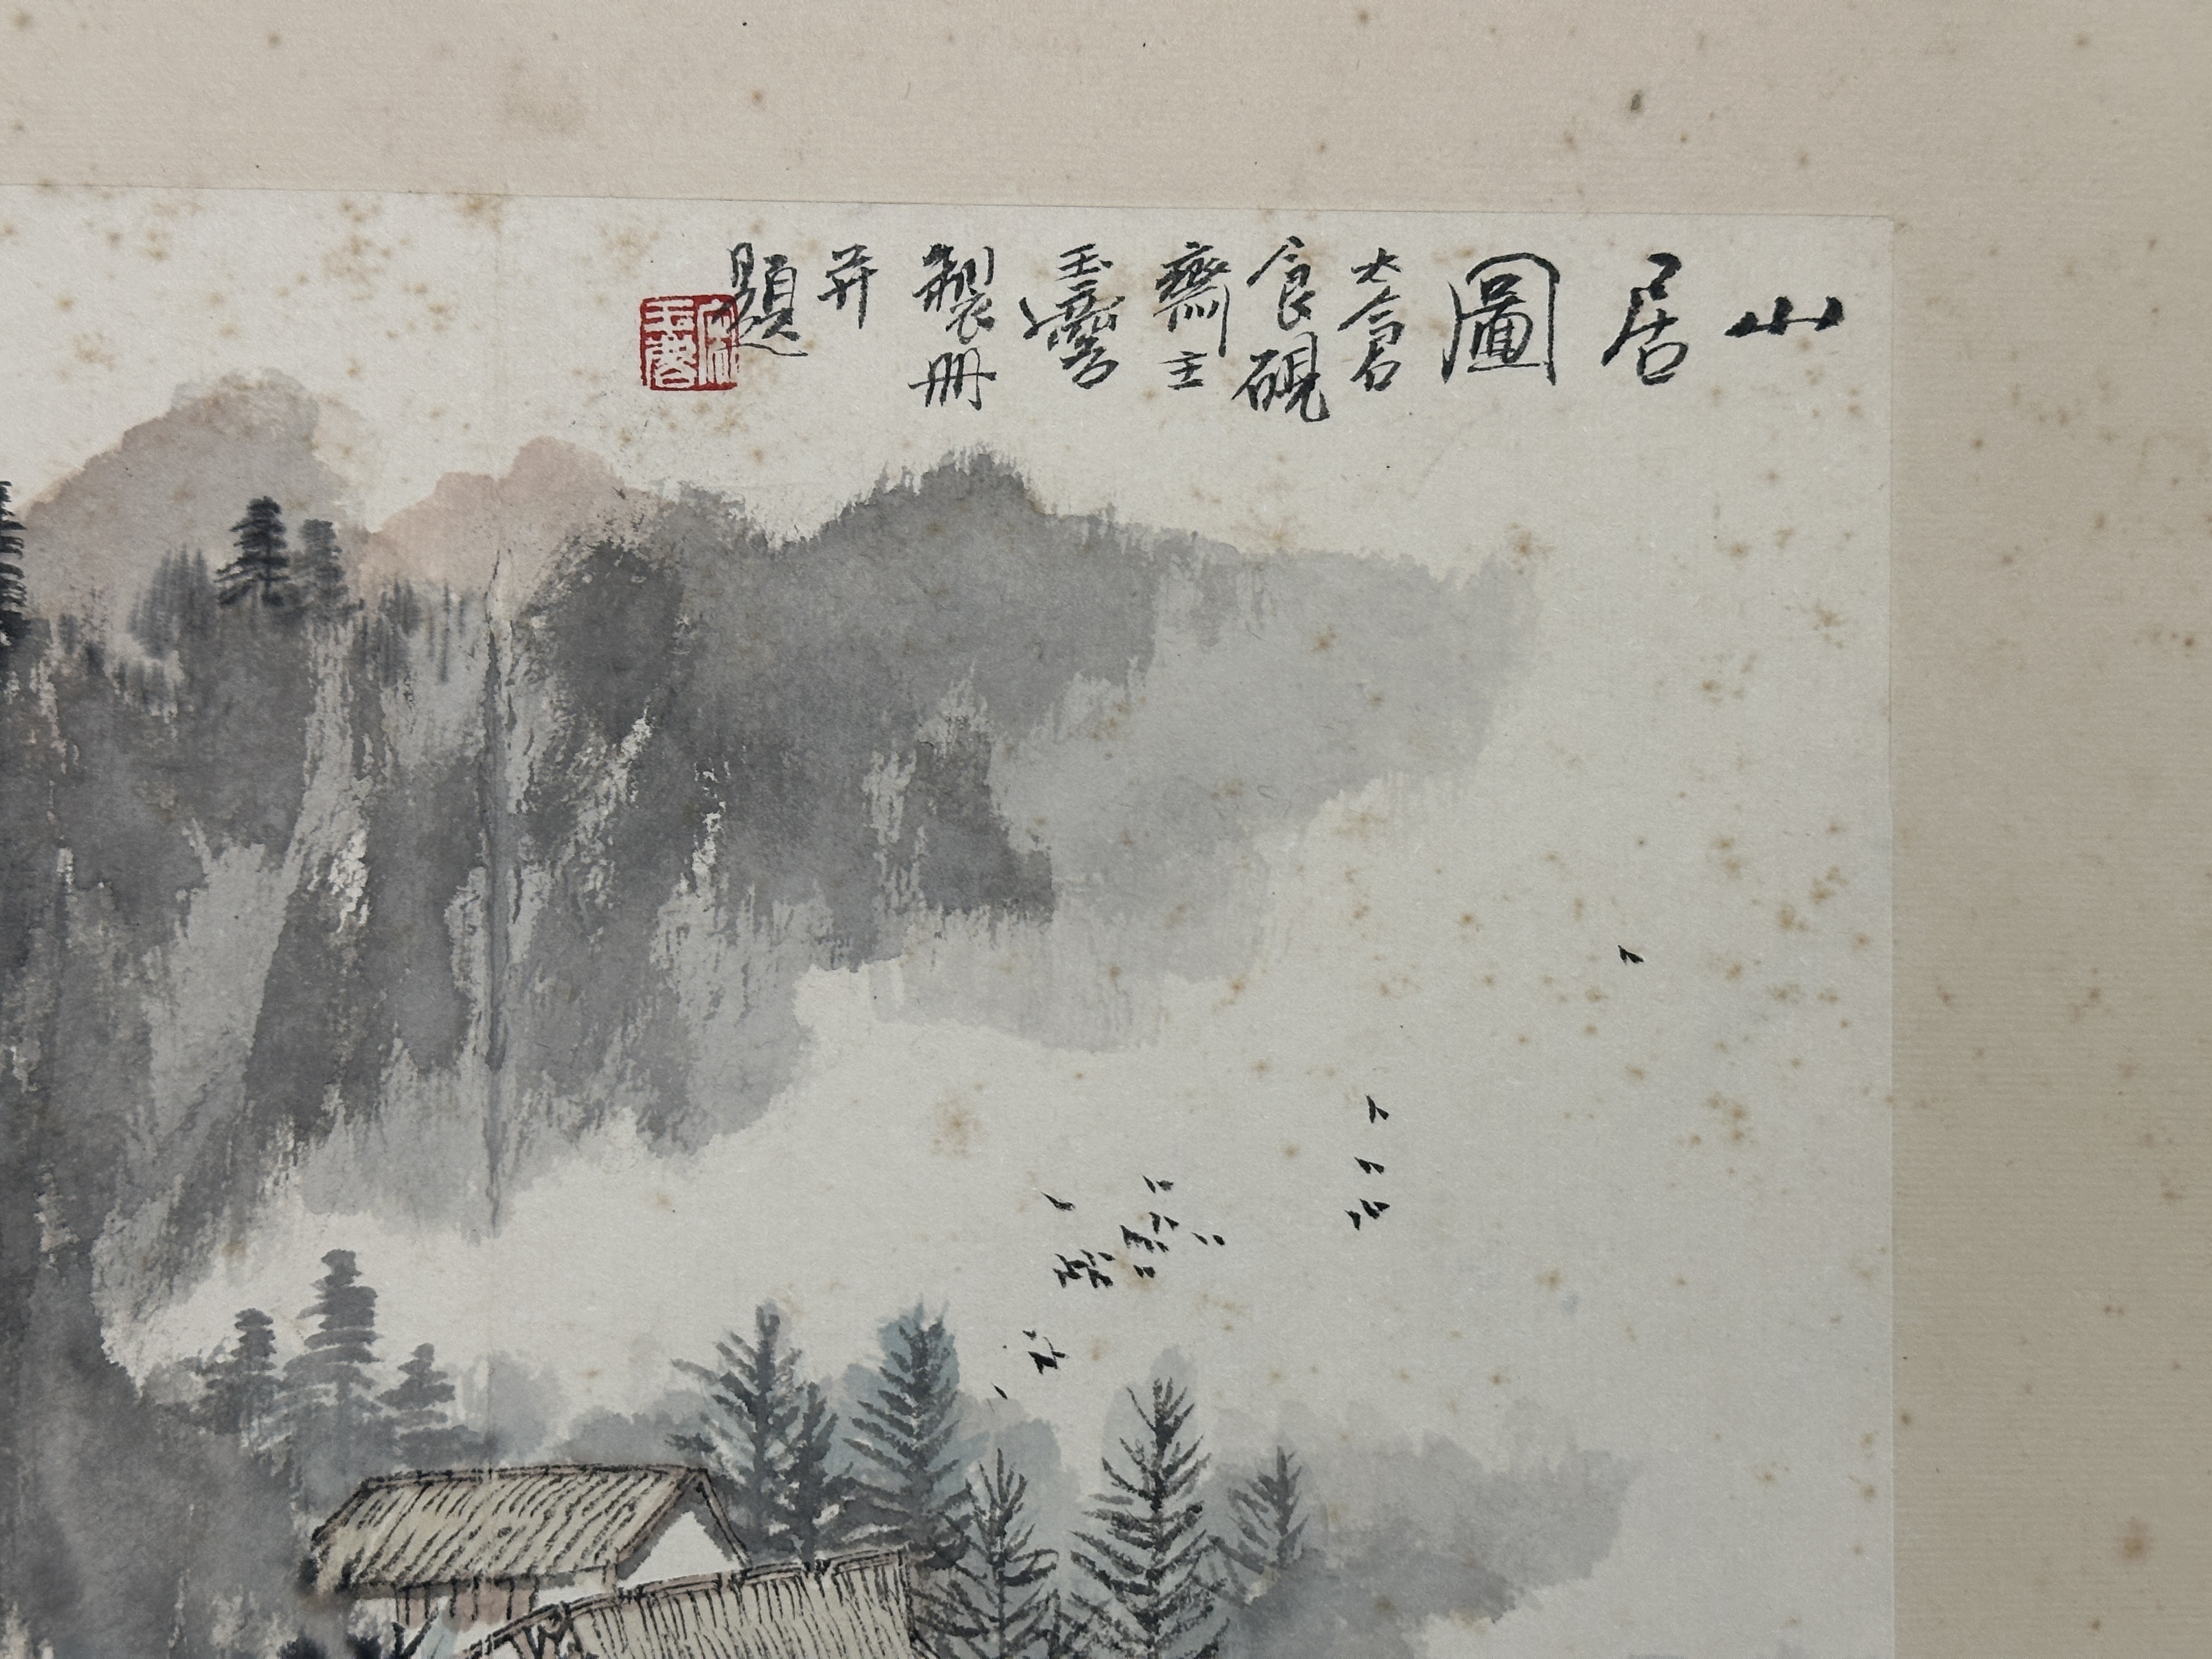 山
居
圖
大
食硯
齋主
玉
製冊
并
題